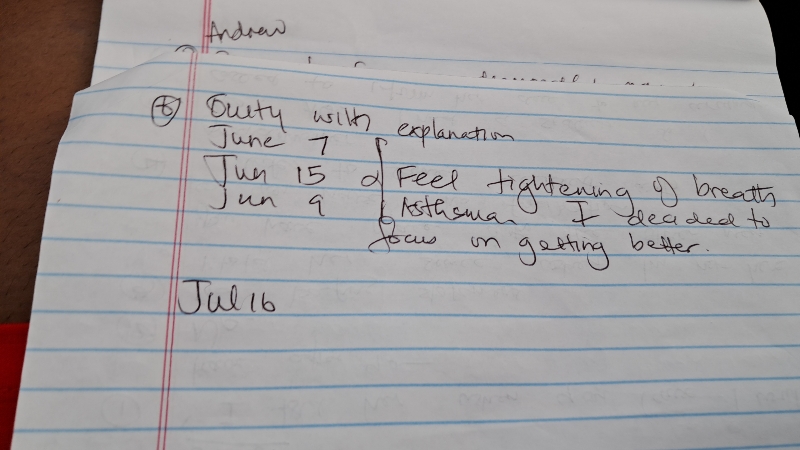 Andrew
⑥ Guity with explanation
June 7
Jun 15 Feel tightening of breath
Jun 9 Asthsma. I decided to
focus on getting better.
Jul 16